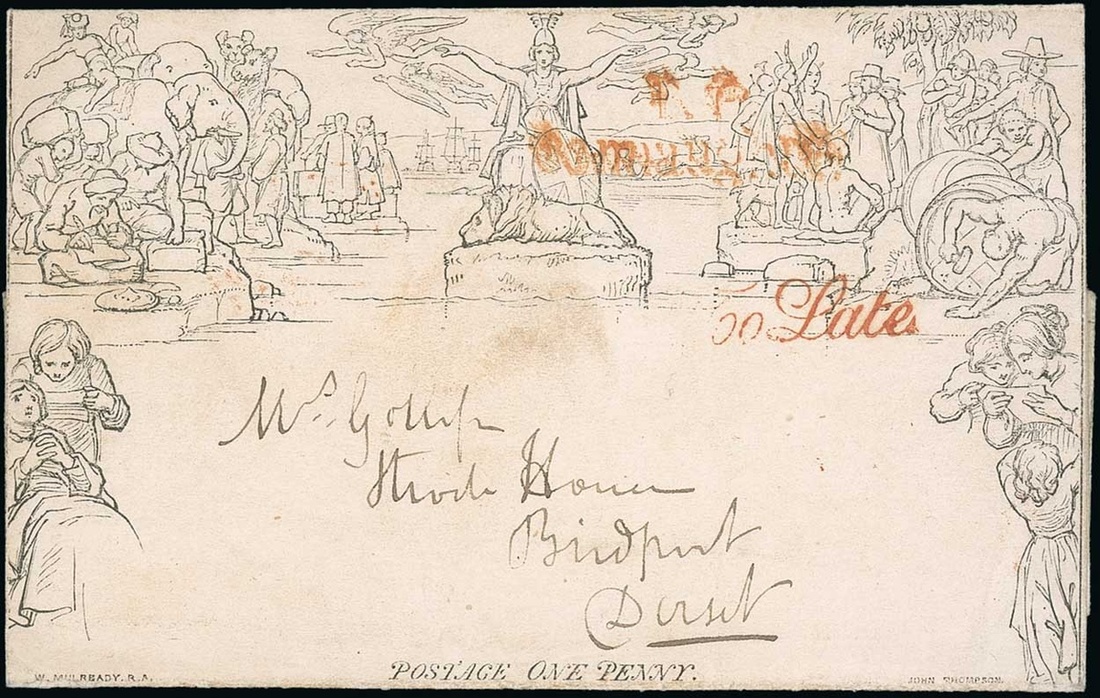 T.P
Too Late
Mrs. Gollop
Strode House
Bridport
Dorset
POSTAGE ONE PENNY.
W. MULREADY. R.A.
JOHN THOMPSON.